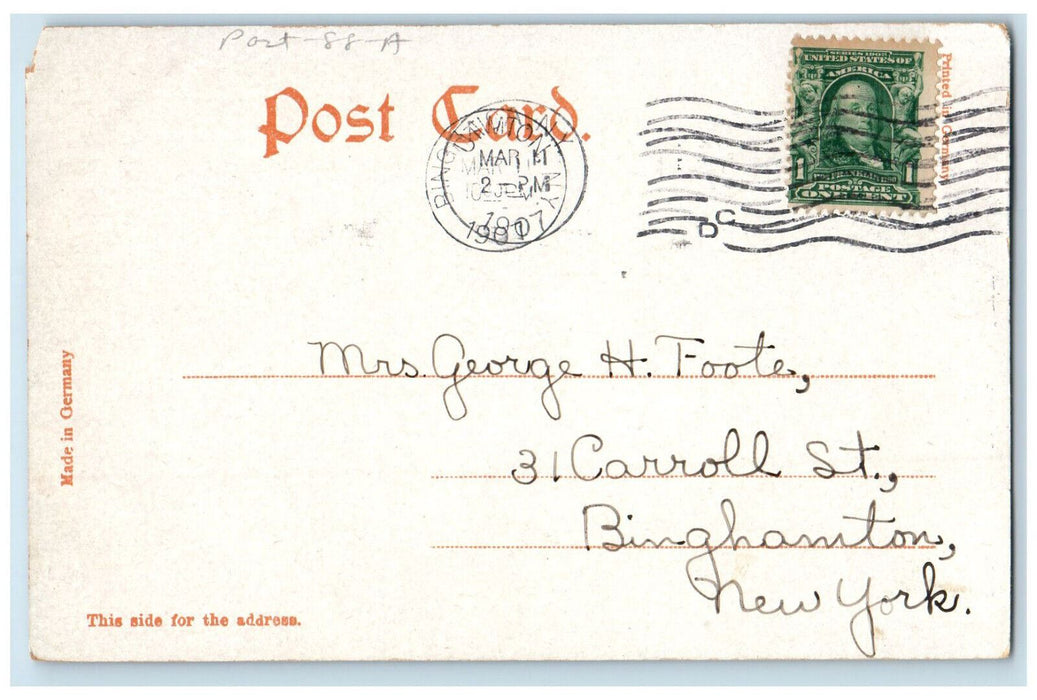 Post-88-A
Post Card.
BINGHAMTON N.Y.
MAR 11
2 - PM
1907
SERIES 1902
UNITED STATES OF
AMERICA
1
FRANKLIN
POSTAGE
ONE CENT
Printed in Germany
Mrs. George H. Foote,
31 Carroll St.,
Binghamton,
New York.
Made in Germany
This side for the address.